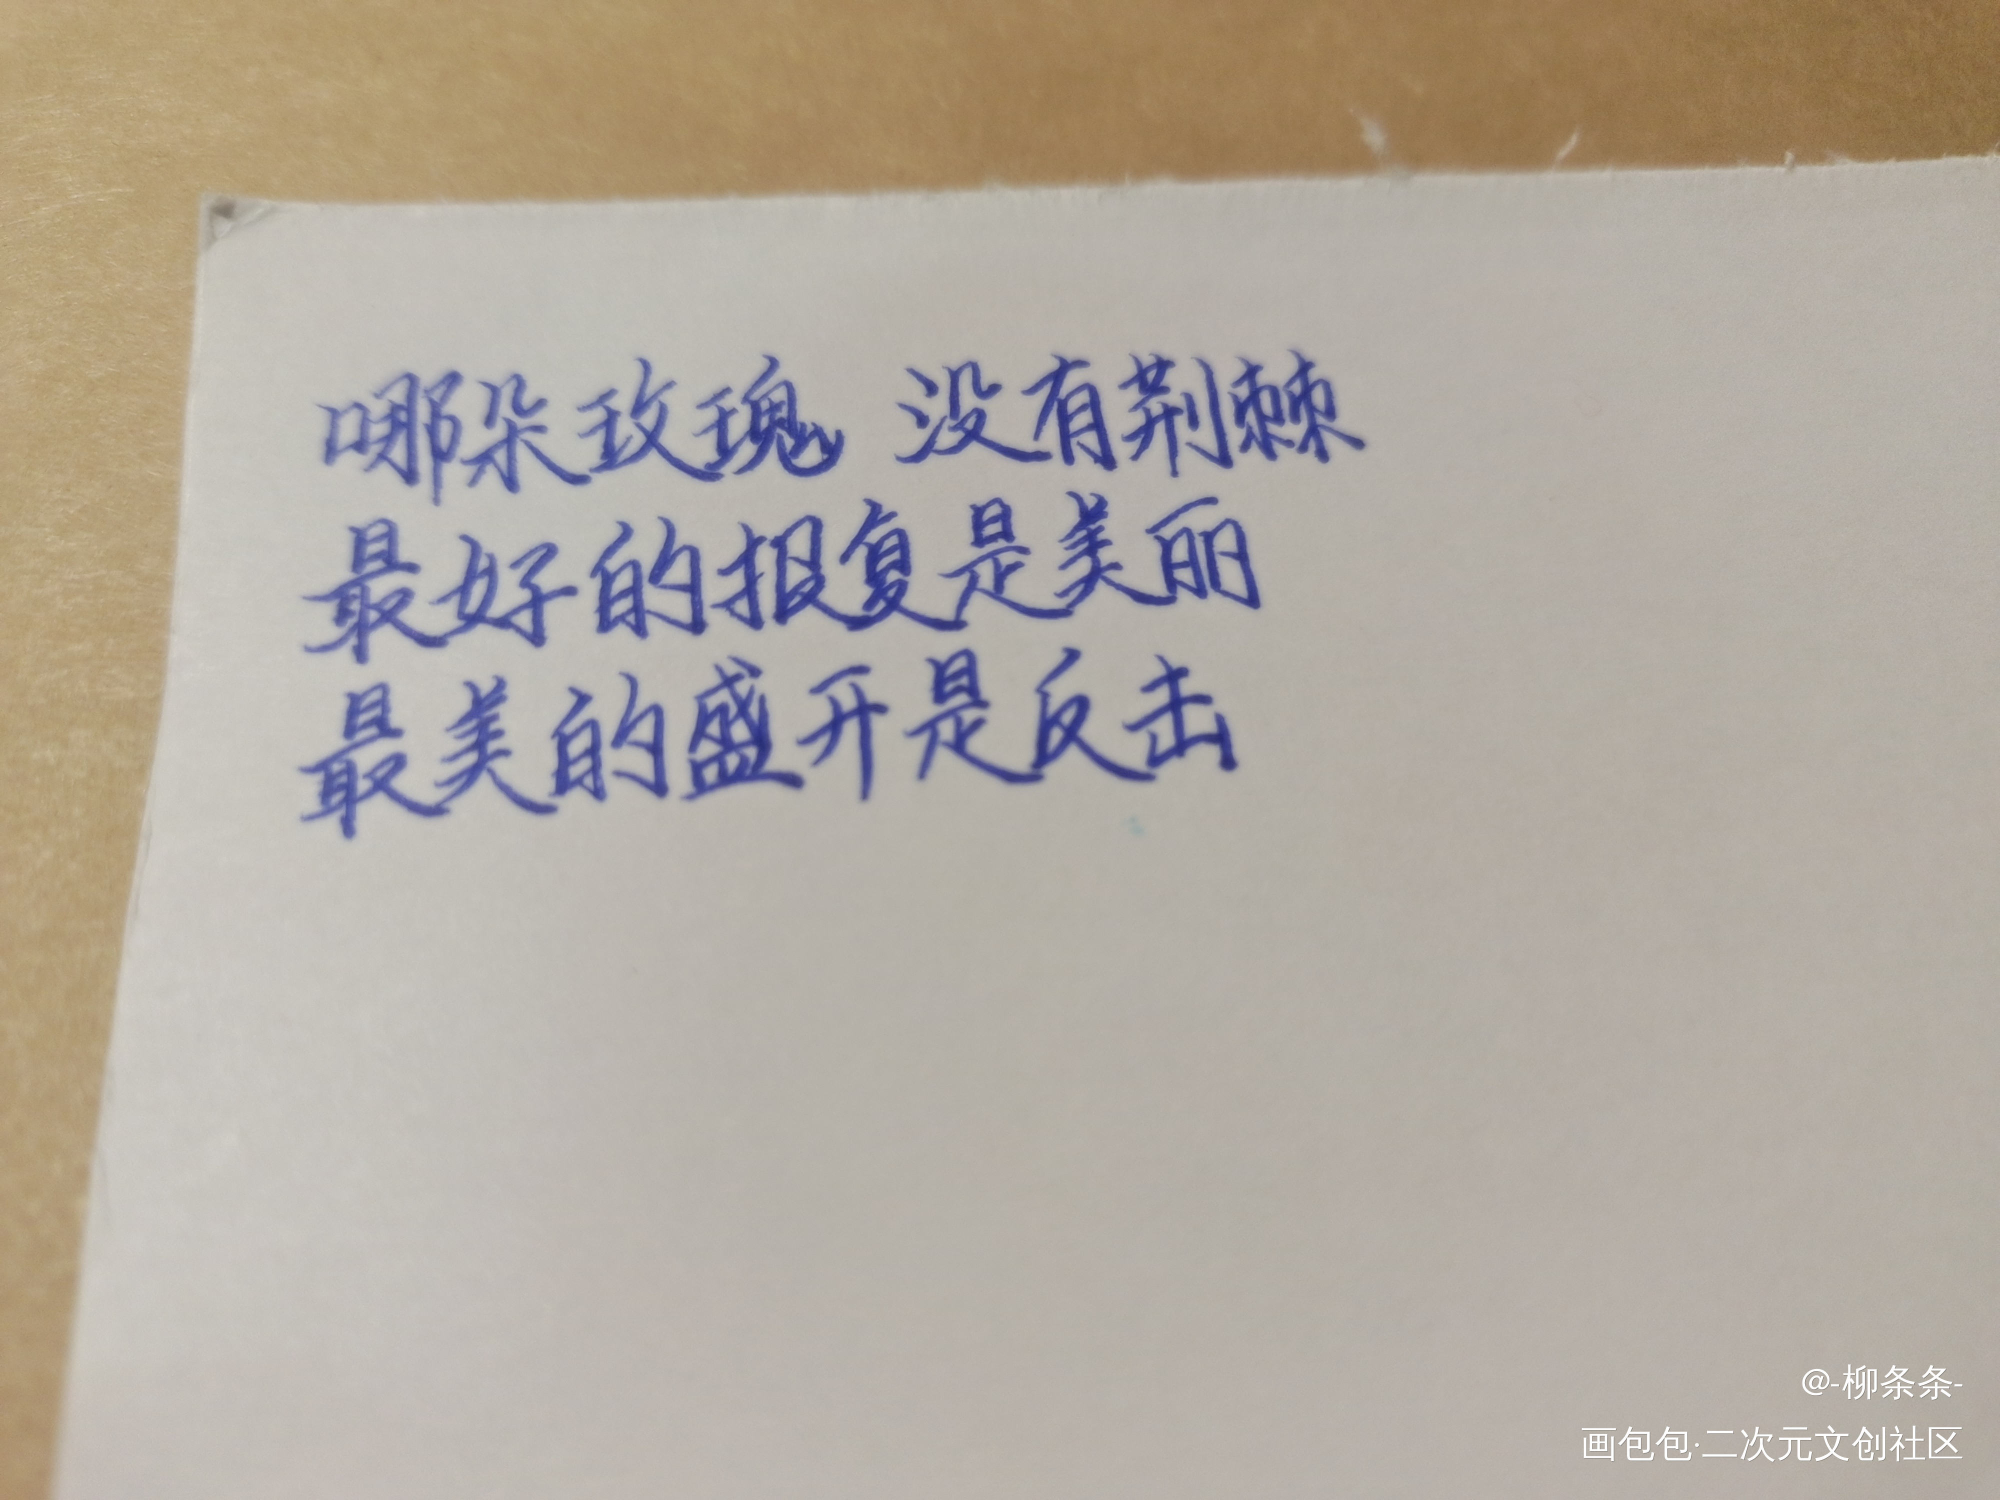 哪朵玫瑰 没有荆棘
最好的报复是美丽
最美的盛开是反击
@-柳条条-
画包包·二次元文创社区